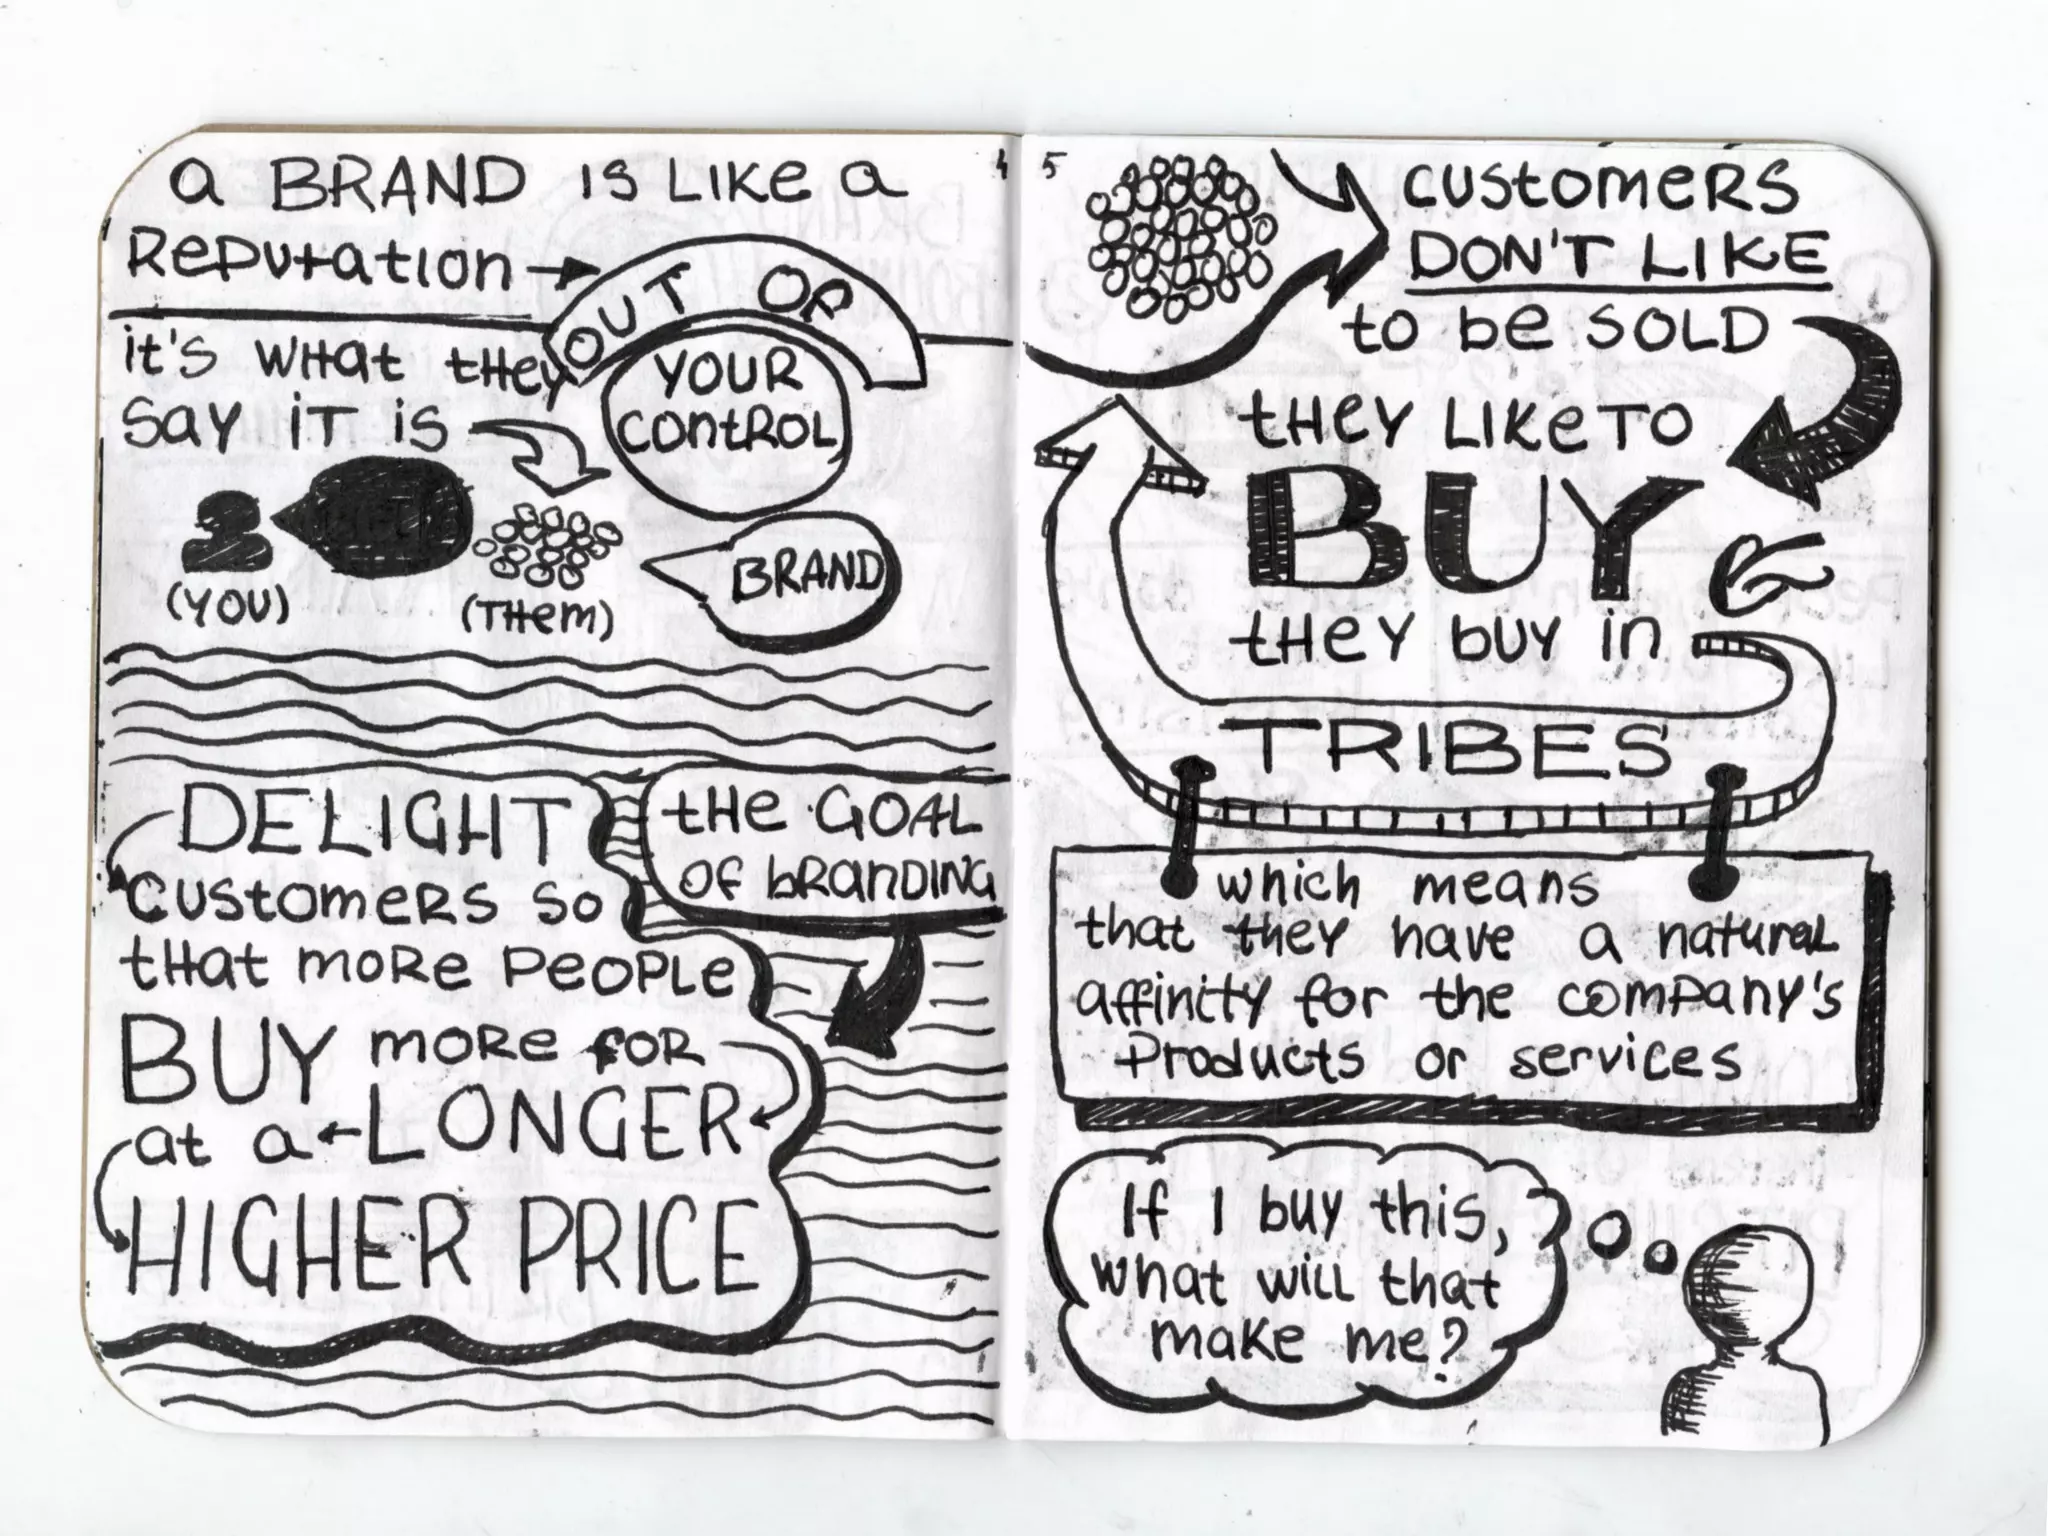 4
a BRAND IS LIKE a
REPUtation
OUT OF
YOUR
CONTROL
it's WHat tHEY
SaY iT is
(YOU)
(THEm)
BRAND
tHe GOAL
OF bRanDING
DELIGHT
CUStomERS SO
tHat moRe PeOPLe
BUY moRe FOR
LONGER
at a
HIGHER PRICE
5
CUStomeRS
DON'T LIKE
to be SOLD
tHeY LIKe TO
BUY
tHeY buY in
TRIBES
which means
that they have a natural
affinity for the company's
Products or services
If I buy this,
what will that
make me?